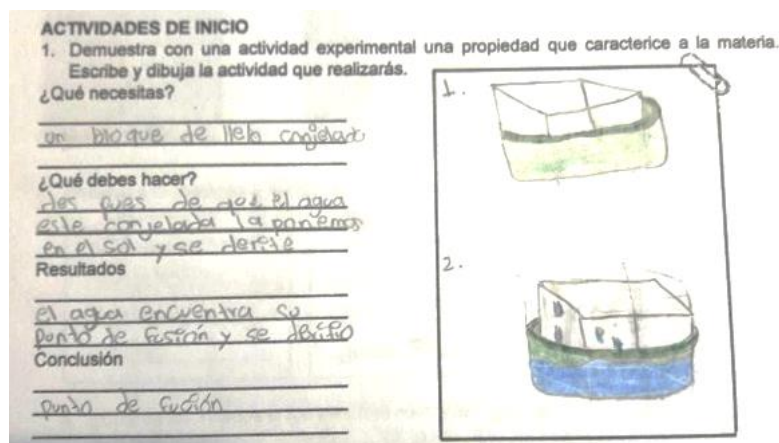 ACTIVIDADES DE INICIO
1. Demuestra con una actividad experimental una propiedad que caracterice a la materia.
Escribe y dibuja la actividad que realizarás.
¿Qué necesitas?
1.
un bloque de
¿Qué debes hacer?
des ques de que el agua
este conjelada la ponemos
en el sol y se derete
2.
Resultados
el agua encuentra su
punto de fusión y se
Conclusión
punto de fución